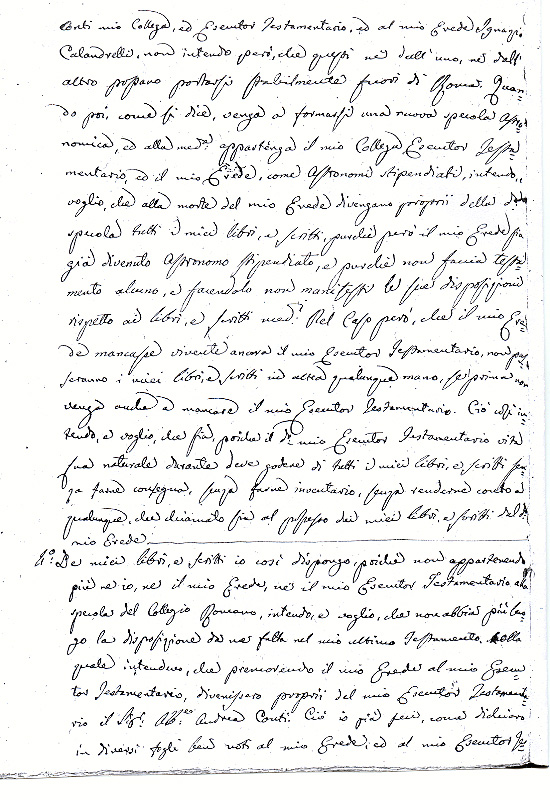 Conti mio Collega, ed Esecutor Testamentario, ed al mio Erede Ignazio
Calandrelli, non intendo però, che questi nè dall' uno, nè dall'
altro possano portarsi stabilmente fuori di Roma. Quan-
do poi, come si dice, venga a formarsi una nuova specola Astro-
nomica, ed alla med.ª appartenga il mio Collega Esecutor Testa-
mentario, ed il mio Erede, come Astronomi stipendiati, intendo,
voglio, che alla morte del mio Erede divengano proprii della detta
specola tutti i miei libri, e scritti, purchè però il mio Erede sia
già divenuto Astronomo stipendiato, e purchè non faccia testa-
mento alcuno, e facendolo non manifesti le sue disposizioni
rispetto ai libri, e scritti med.i Nel Caso però, che il mio Ere-
de mancasse vivente ancora il mio Esecutor Testamentario, non pas-
seranno i miei libri, e scritti in altra qualunque mano, se prima non
venga anche a mancare il mio Esecutor Testamentario. Ciò così in-
tendo, e voglio, che sia, poichè il d.º mio Esecutor Testamentario vita
sua naturale durante deve godere di tutti i miei libri, e scritti sen-
za farne consegna, senza farne inventario, senza renderne conto a
qualunque, che chiamato sia al possesso dei miei libri, e scritti dal d.º
mio Erede.
4.º De miei libri, e scritti io così dispongo, poichè non appartenendo
più nè io, nè il mio Erede, nè il mio Esecutor Testamentario alla
specola del Collegio Romano, intendo, e voglio, che non abbia più luo-
go la disposizione da me fatta nel mio ultimo Testamento. Nella
quale intendevo, che premorendo il mio Erede al mio Esecu-
tor Testamentario, divenissero proprii del mio Esecutor Testamenta-
rio il Sig.r Ab.te Andrea Conti. Ciò io già feci, come dichiaro
in diversi fogli ben noti al mio Erede, ed al mio Esecutor Te-